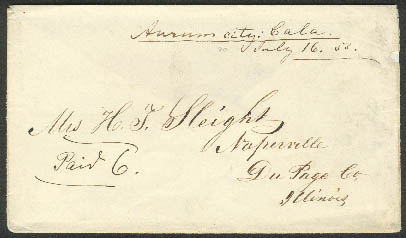 Aurum city. Cala.
July 16. 55.
Mrs H. T. Sleight
Naperville
Paid 6.
Du Page Co
Illinois